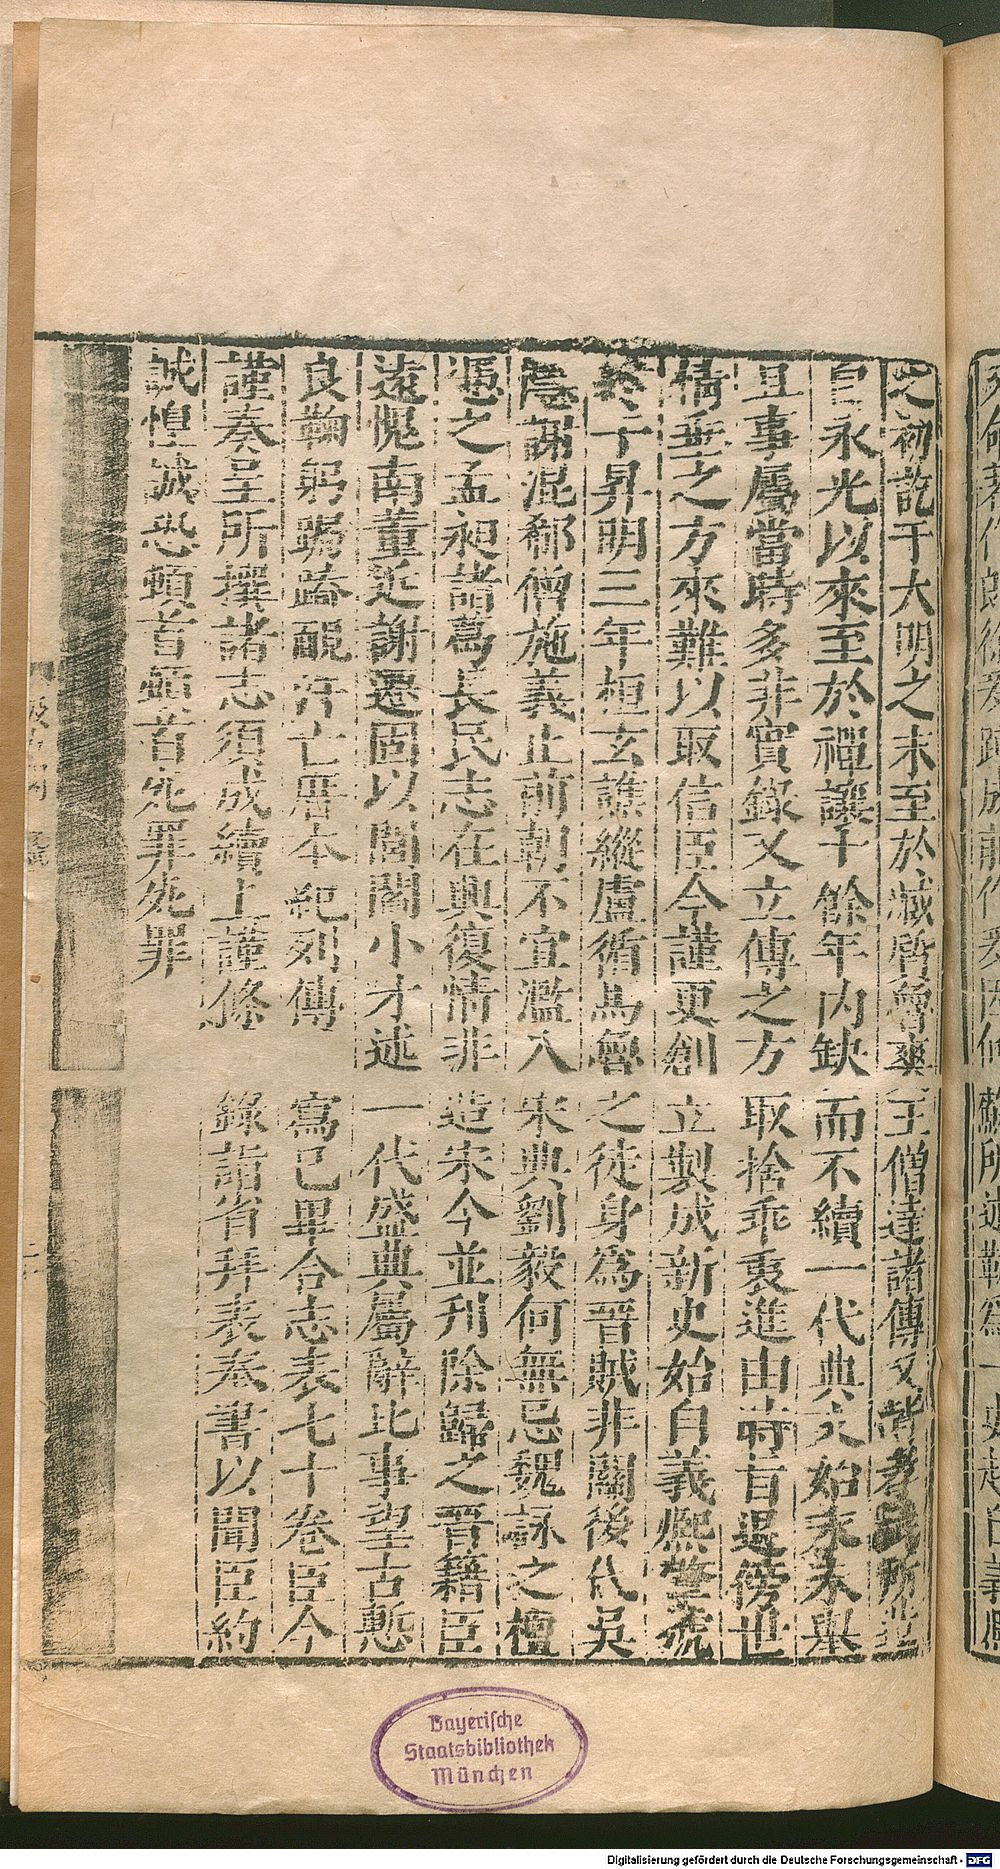 之初訖于大明之末至於臧質魯爽王僧達諸傳又皆孝武所造
自永光以來至於禪讓十餘年內缺而不續一代典文始末未舉
且事屬當時多非實錄又立傳之方取捨乖衷進由時旨退傍世
情垂之方來難以取信臣今謹更創立製成新史始自義熙肇號
終于昇明三年桓玄譙縱盧循馬魯之徒身爲晉賊非關後代吳
隱謝混郗僧施義止前朝不宜濫入宋典劉毅何無忌魏詠之檀
憑之孟昶諸葛長民志在興復情非造宋今並刋除歸之晉籍臣
遠愧南董近謝遷固以閭閻小才述一代盛典屬辭比事望古慙
良鞠躬跼蹐靦汗亡厝本紀列傳寫已畢合志表七十卷臣今
謹奏呈所撰諸志須成續上謹條錄詣省拜表奉書以聞臣約
誠惶誠恐頓首頓首死罪死罪
Bayerische
Staatsbibliothek
München
Digitalisierung gefördert durch die Deutsche Forschungsgemeinschaft - DFG